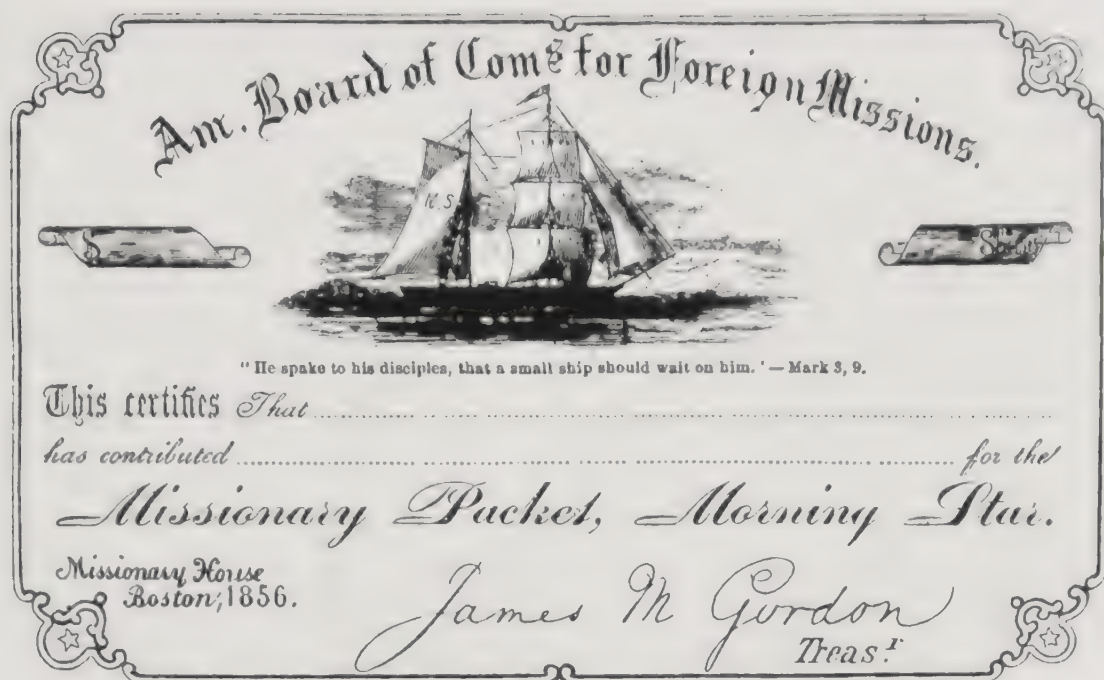 Am. Board of Com.s for Foreign Missions.
M.S.
$
"He spake to his disciples, that a small ship should wait on him.' — Mark 3, 9.
This certifies That
has contributed for the
Missionary Packet, Morning Star.
Missionary House
Boston, 1856.
James M Gordon
Treas.r